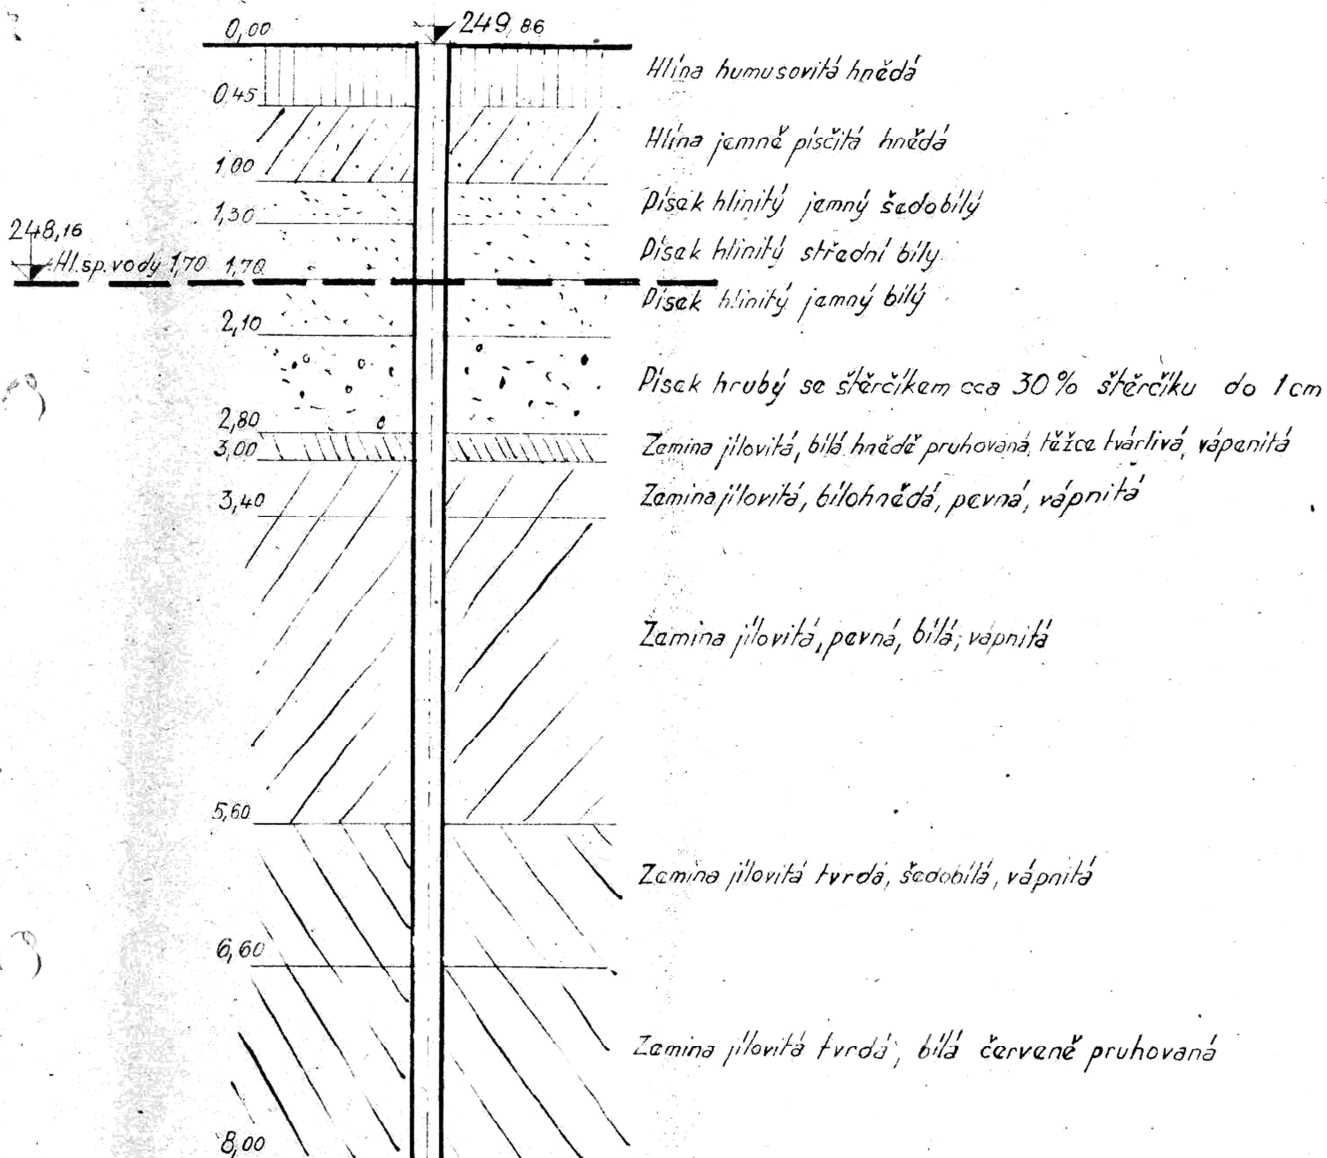 0,00
249,86
Hlína humusovitá hnědá
0,45
Hlína jemně písčitá hnědá
1,00
Písek hlinitý jemný šedobílý
1,30
248,16
Písek hlinitý střední bílý
Hl.sp.vody 1,70 1,70
Písek hlinitý jemný bílý
2,10
Písek hrubý se štěrčíkem cca 30% štěrčíku do 1cm
2,80
Zemina jílovitá, bílá hnědě pruhovaná, těžce tvárlivá, vápenitá
3,00
Zemina jílovitá, bílohnědá, pevná, vápnitá
3,40
Zemina jílovitá, pevná, bílá, vápnitá
5,60
Zemina jílovitá tvrdá, šedobílá, vápnitá
6,60
Zemina jílovitá tvrdá, bílá červeně pruhovaná
8,00